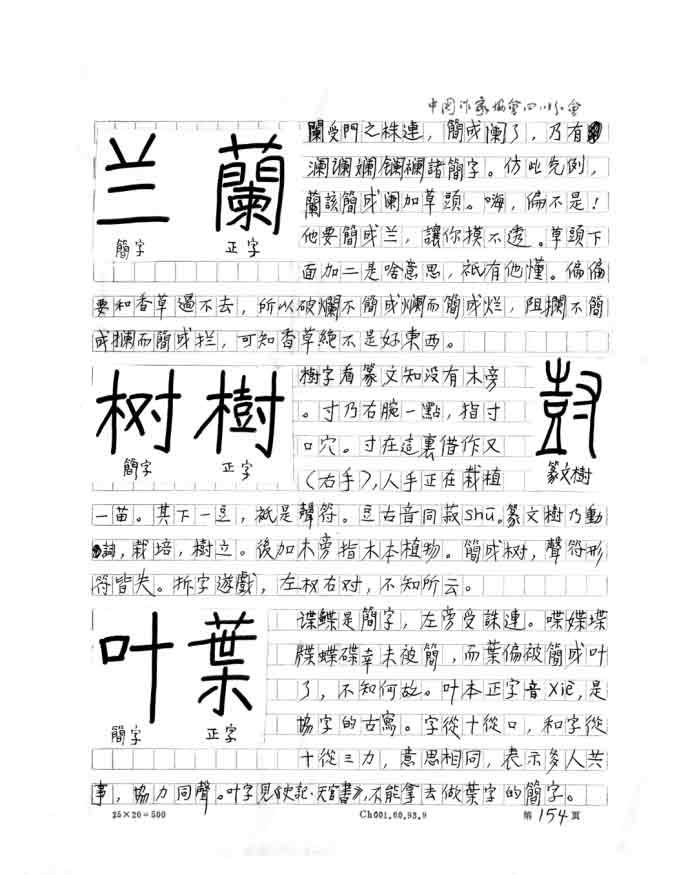 中国作家協會四川分會
兰 蘭
簡字 正字
闌受門之株連，簡成阑了，乃有
澜谰斓镧襕諸簡字。仿此先例，
蘭該簡成阑加草頭。嗨，偏不是！
他要簡成兰，讓你摸不透。草頭下
面加二是啥意思，衹有他懂。偏偏
要和香草過不去，所以破爛不簡成灿而簡成烂，阻攔不簡
成攔而簡成拦，可知香草絶不是好東西。
树 樹
簡字 正字
樹字看篆文知没有木旁
。寸乃右腕一點，指寸
口穴。寸在這裏借作又
（右手），人手正在栽植
篆文樹
一苗。其下一豆，衹是聲符。豆古音同菽shū。篆文樹乃動
詞，栽培，樹立。後加木旁指木本植物。簡成树，聲符形
符皆失。拆字遊戲，左权右对，不知所云。
叶 葉
簡字 正字
谍鲽是簡字，左旁受誅連。喋媟堞
牒蝶碟幸未被簡，而葉偏被簡成叶
了，不知何故。叶本正字音xié，是
協字的古寫。字從十從口，和字從
十從三力，意思相同，表示多人共
事，協力同聲。叶字見《史記·天官書》，不能拿去做葉字的簡字。
25×20=500
Ch001.60.93.9
第154頁